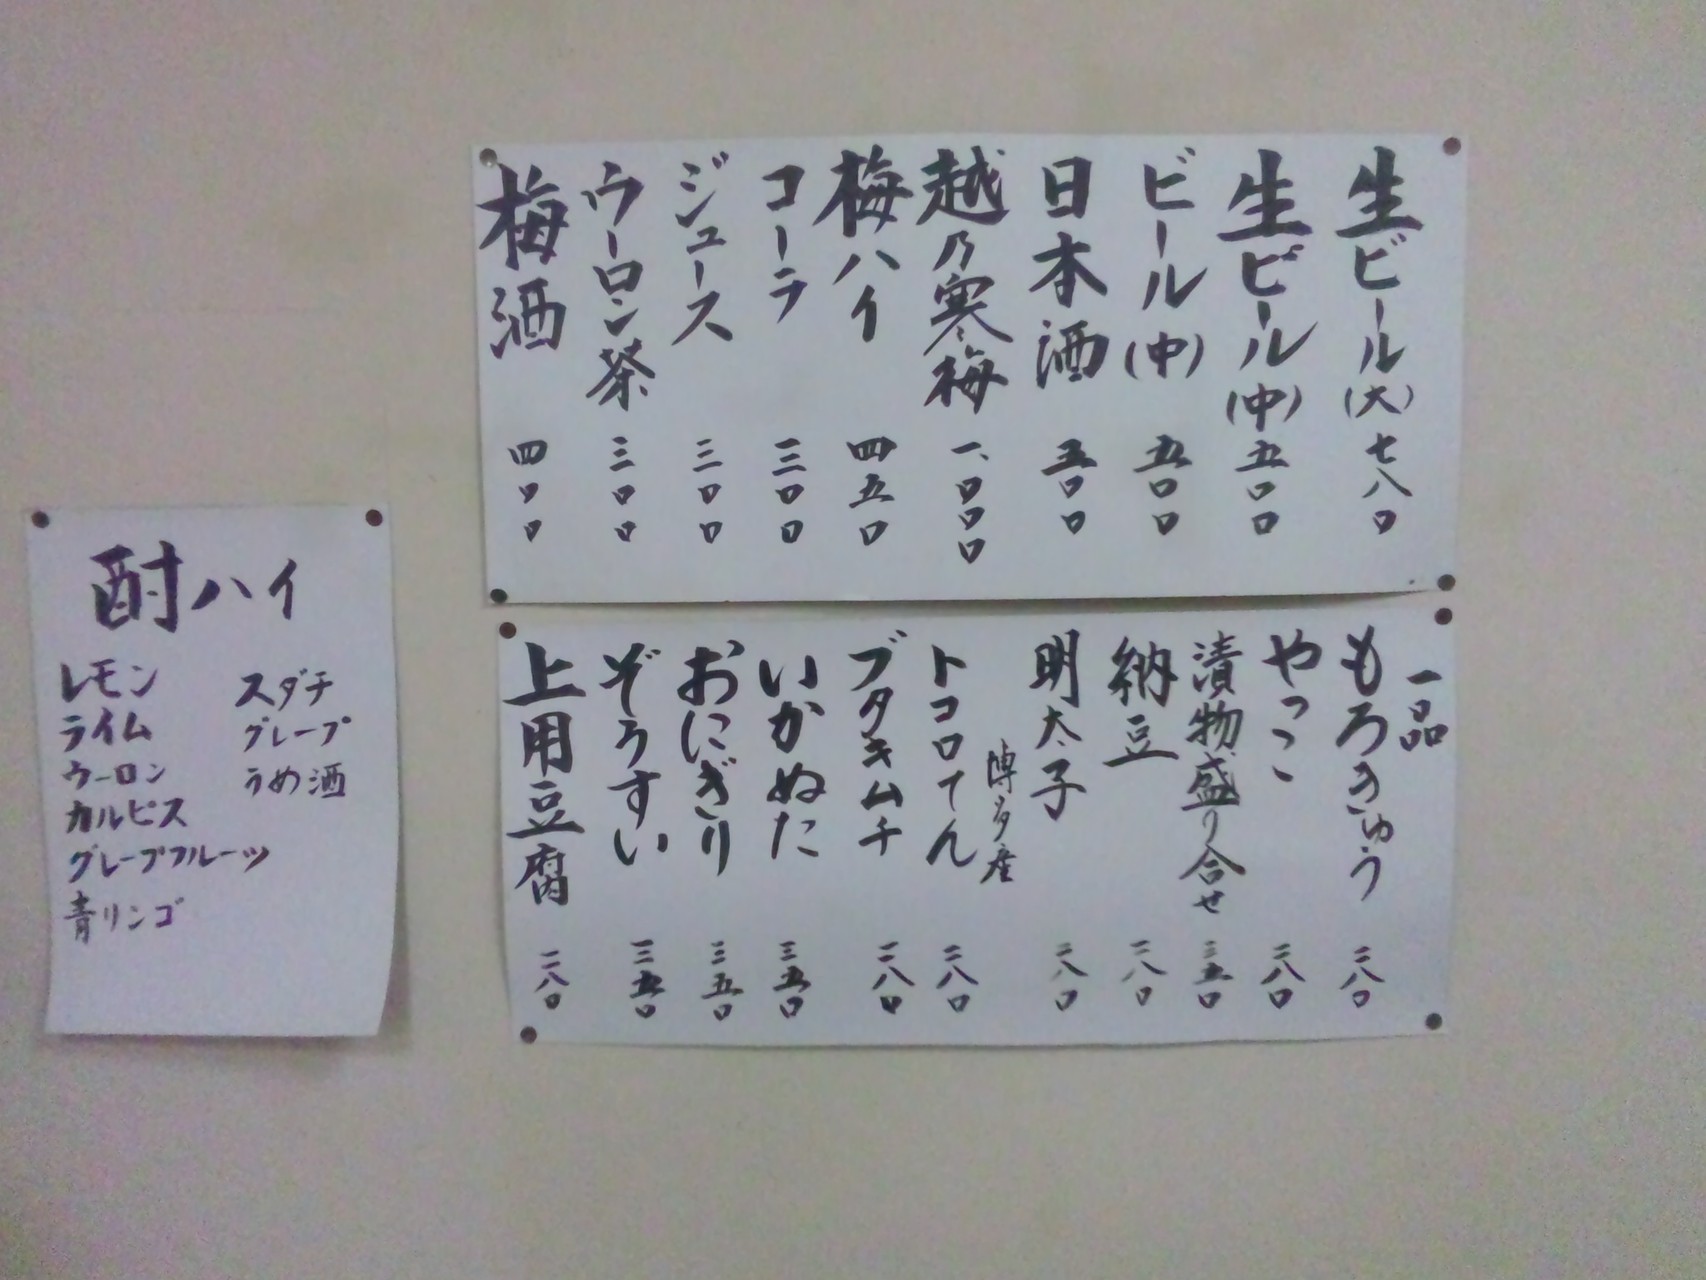 生ビール(大) 七八〇
生ビール(中) 五〇〇
ビール(中) 五〇〇
日本酒 五〇〇
越乃寒梅 一、〇〇〇
梅ハイ 四五〇
コーラ 三〇〇
ジュース 三〇〇
ウーロン茶 三〇〇
梅酒 四〇〇
一品
もろきゅう 二八〇
やっこ 二八〇
漬物盛り合せ 三五〇
納豆 二八〇
明太子 二八〇
博多産
トコロてん 二八〇
ブタキムチ 二八〇
いかぬた 三五〇
おにぎり 三五〇
ぞうすい 三五〇
上用豆腐 二八〇
酎ハイ
レモン
ライム
ウーロン
カルピス
グレープフルーツ
青リンゴ
スダチ
グレープ
うめ酒